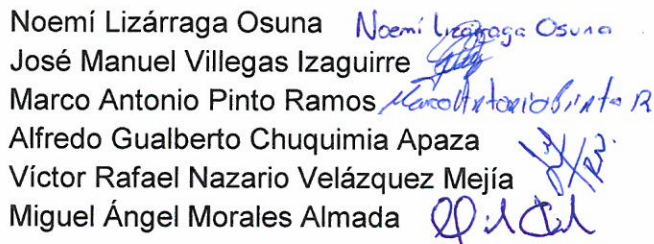 Noemí Lizárraga Osuna Noemí Lizárraga Osuna
José Manuel Villegas Izaguirre
Marco Antonio Pinto Ramos Marco Antonio Pinto R
Alfredo Gualberto Chuquimia Apaza
Víctor Rafael Nazario Velázquez Mejía
Miguel Ángel Morales Almada